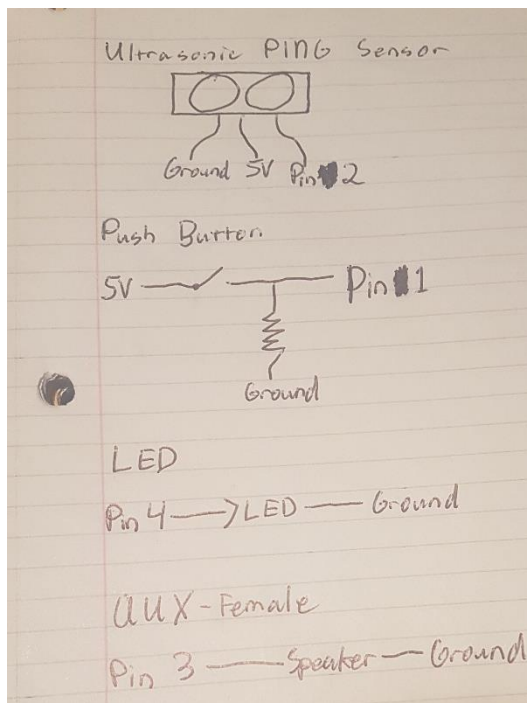 Ultrasonic PING Sensor
Ground 5V Pin 2
Push Button
5V Pin 1
Ground
LED
Pin 4 LED Ground
AUX-Female
Pin 3 Speaker Ground